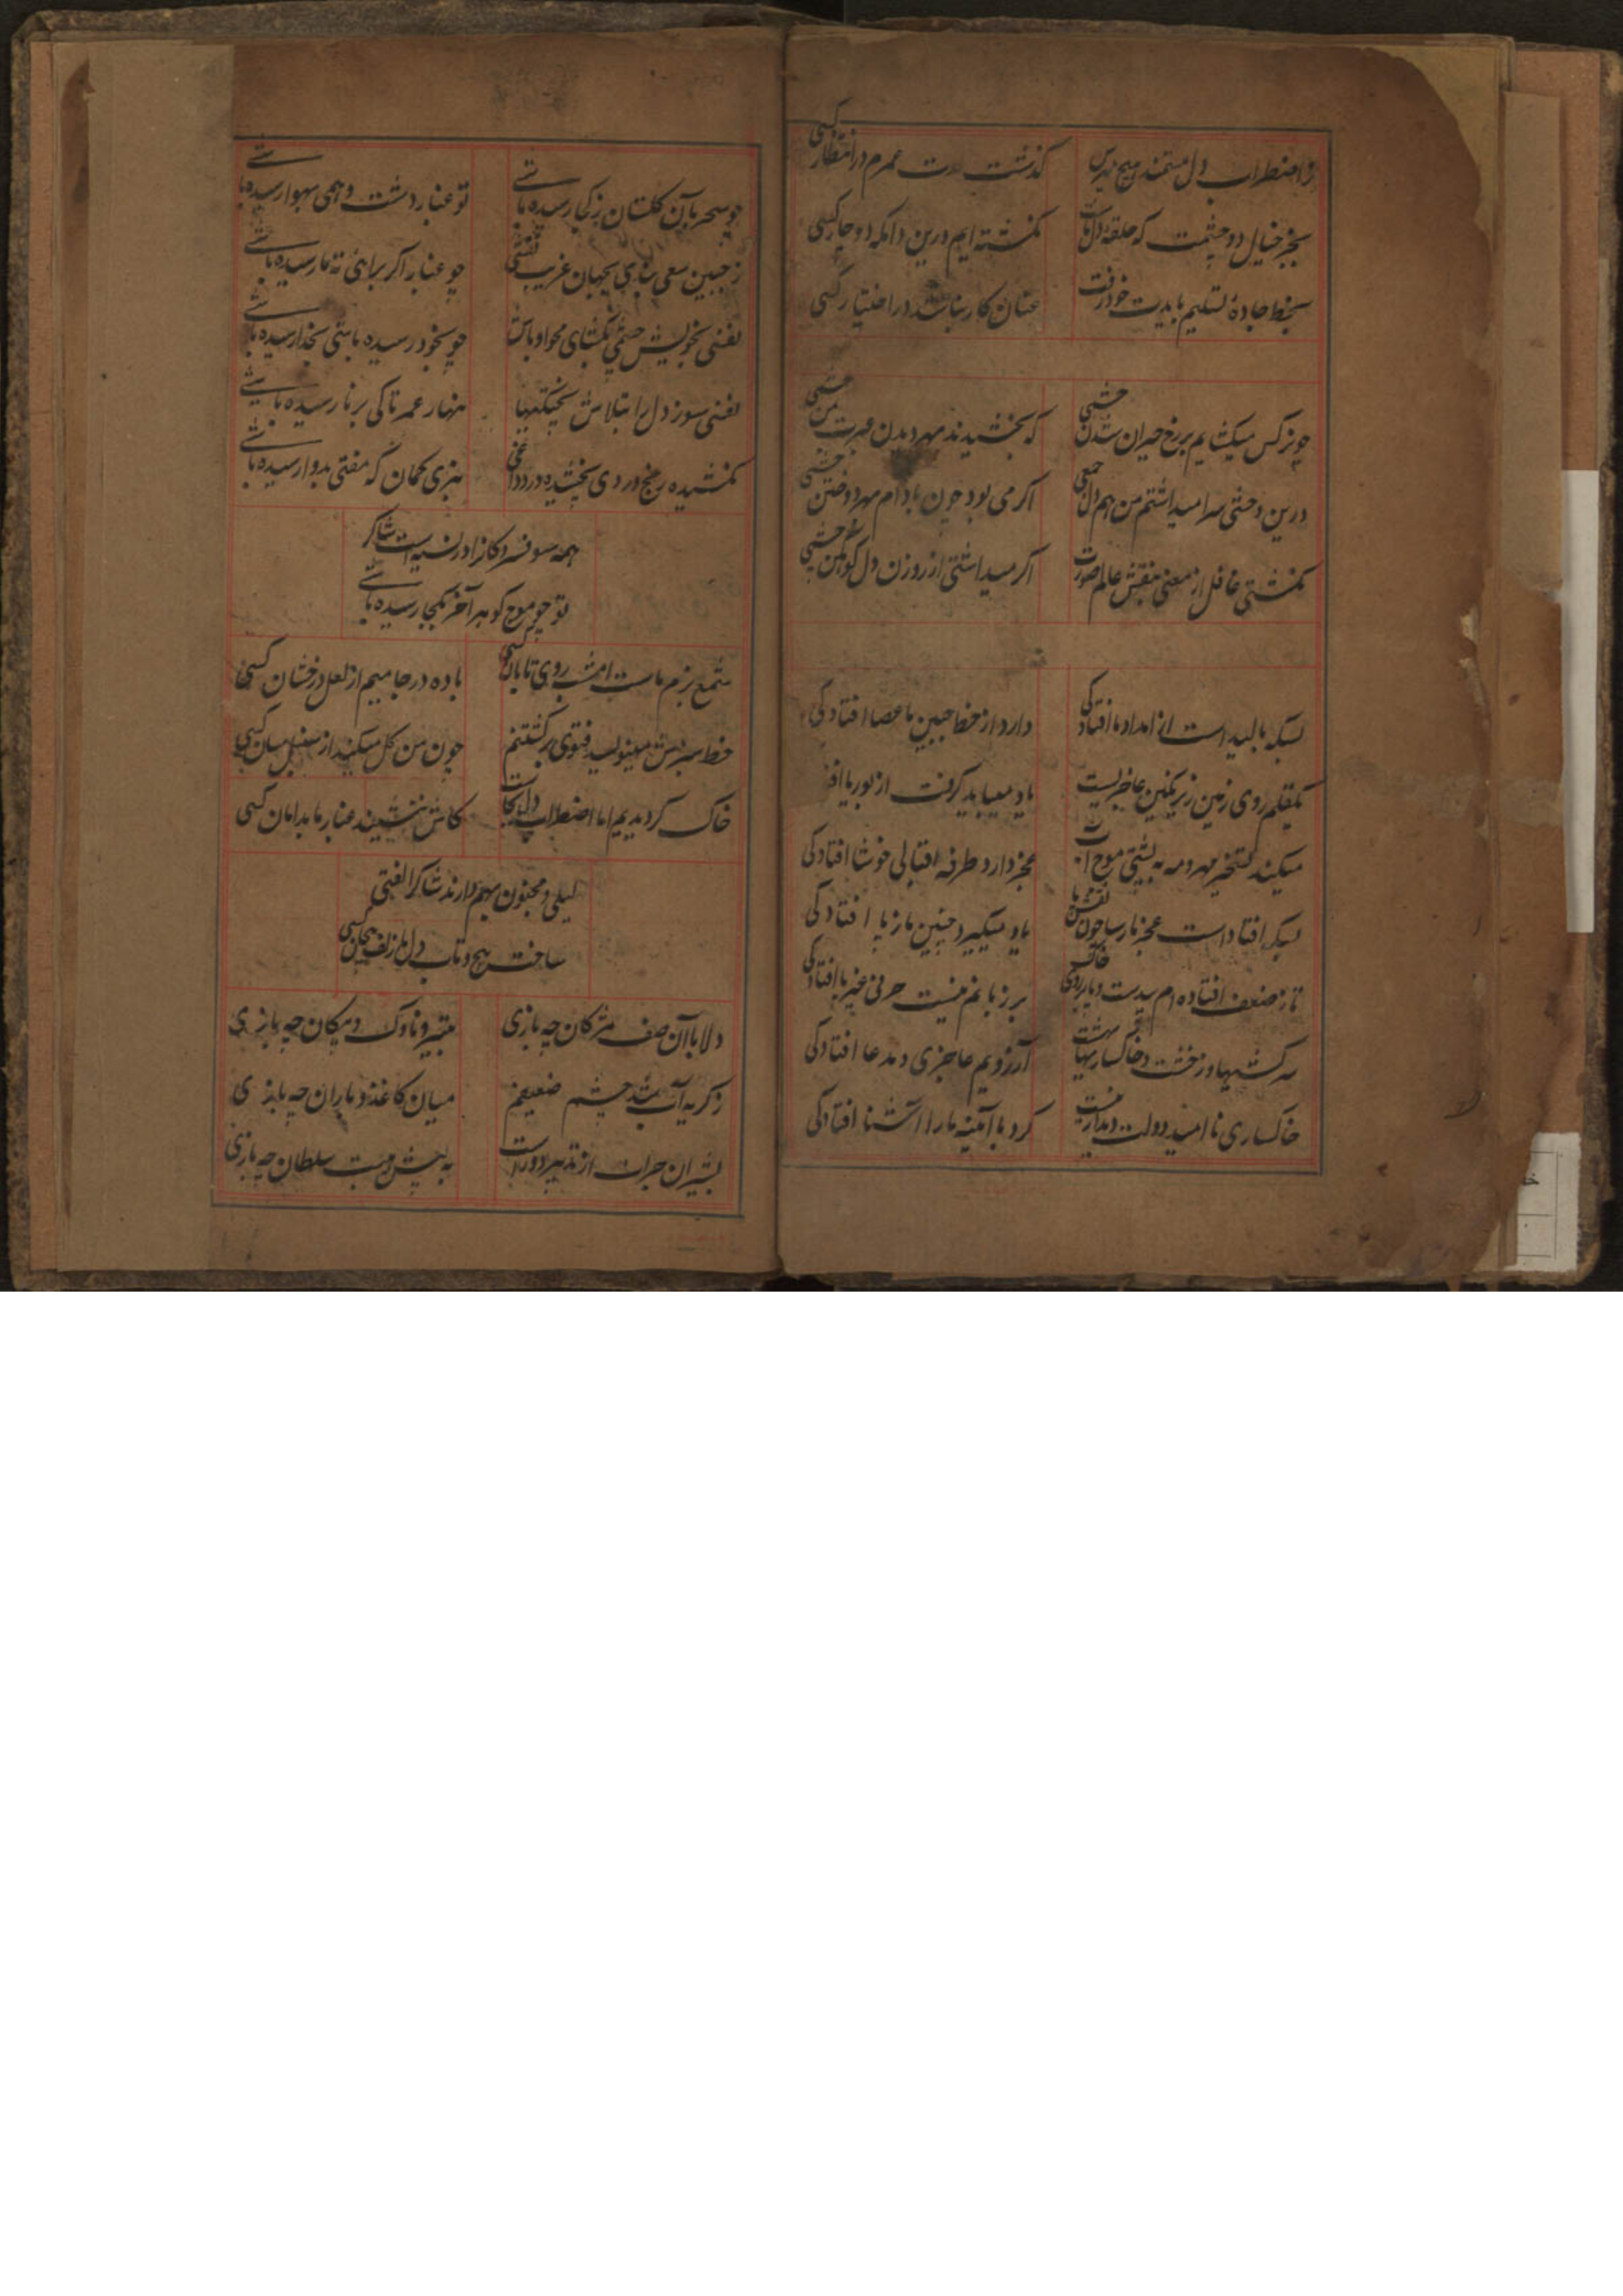 ز اضطراب دل مستمند هیچ مپرس
گذشت مدت عمرم در انتظار کسی
بجز خیال دو چشمت که حلقه دل ماست
نگشته ایم درین دامگه دوچار کسی
بخط جاده تسلیم بایدت خود رفت
عنان کار نباشد در اختیار کسی
چو نرگس میکشایم بر رخ حیران شدن چشمی
که بخشیدند بهر دیدن عبرت من چشمی
درین وحشی سرا میداشتم من هم دل جمعی
اگر می بود چون بادام بهر دوختن چشمی
نگشتی غافل از معنی بنقش عالم صورت
اگر میداشتی از روزن دل چشمی
بسکه بالیده است از امداد ما افتادگی
دارد از خط جبین ما عصا افتادگی
یکقلم روی زمین زیر نگین عاجزیست
یاد میباید گرفت از بوریا
میکند تسخیر مهر و مه به پشتی موج آب
عجز دارد طرفه اقبالی خوشا افتادگی
بسکه افتاد است عجز نارسا چون نقش پا
یاد میگیرد جبین ما ز پا افتادگی
تا ز ضعف افتاده ام بیدست و پا بر روی خاک
بر زبانم نیست حرفی غیر یا افتادگی
سرکشیها دوزخست و خاکساریها بهشت
آرزویم عاجزی و مدعا افتادگی
خاکساری نا امید دولت دیدار نیست
کرد با آئینه ما را آشنا افتادگی
چو سحر بآن گلستان ز کجا رسیده باشی
تو غبار دشت وهمی بهوا رسیده باشی
ز جبین سعی بجهان غریب نقشی
چو غبار اگر براهی ته پا رسیده باشی
نفسی بخویش چشمی بگشای محو او باش
چو بخود رسیده باشی بخدا رسیده باشی
نفسی بسوز دل را بتلاش پختگیها
بهار عمر تا کی نارسیده باشی
نکشیده رنج دردی نچشیده درد داغی
نبری گمان که مفتی بدوا رسیده باشی
همه سو فسردگانرا در نسیه است شاکر
تو چو موج گوهر آخر بکجا رسیده باشی
شمع بزم ماست امشب روی تابان کسی
باده در جامیم از لعل درخشان کسی
خط سبزش مینویسد فتوی بر کشتنم
خون من گل میکند از کسی
خاک گردیدیم اما اضطراب دل بجاست
کاش ننشیند غبار ما بدامان کسی
لیلی و مجنون بهم دارند شاکر الفتی
ساخت پیچ و تاب دل با زلف پیچان کسی
دلا با آن صف مژگان چه بازی
به تیر و ناوک و پیکان چه بازی
ز گریه آب شد چشم ضعیفم
میان کاغذ و باران چه بازی
بشیران جرات از تدبیر دور است
به پیش هیبت سلطان چه بازی